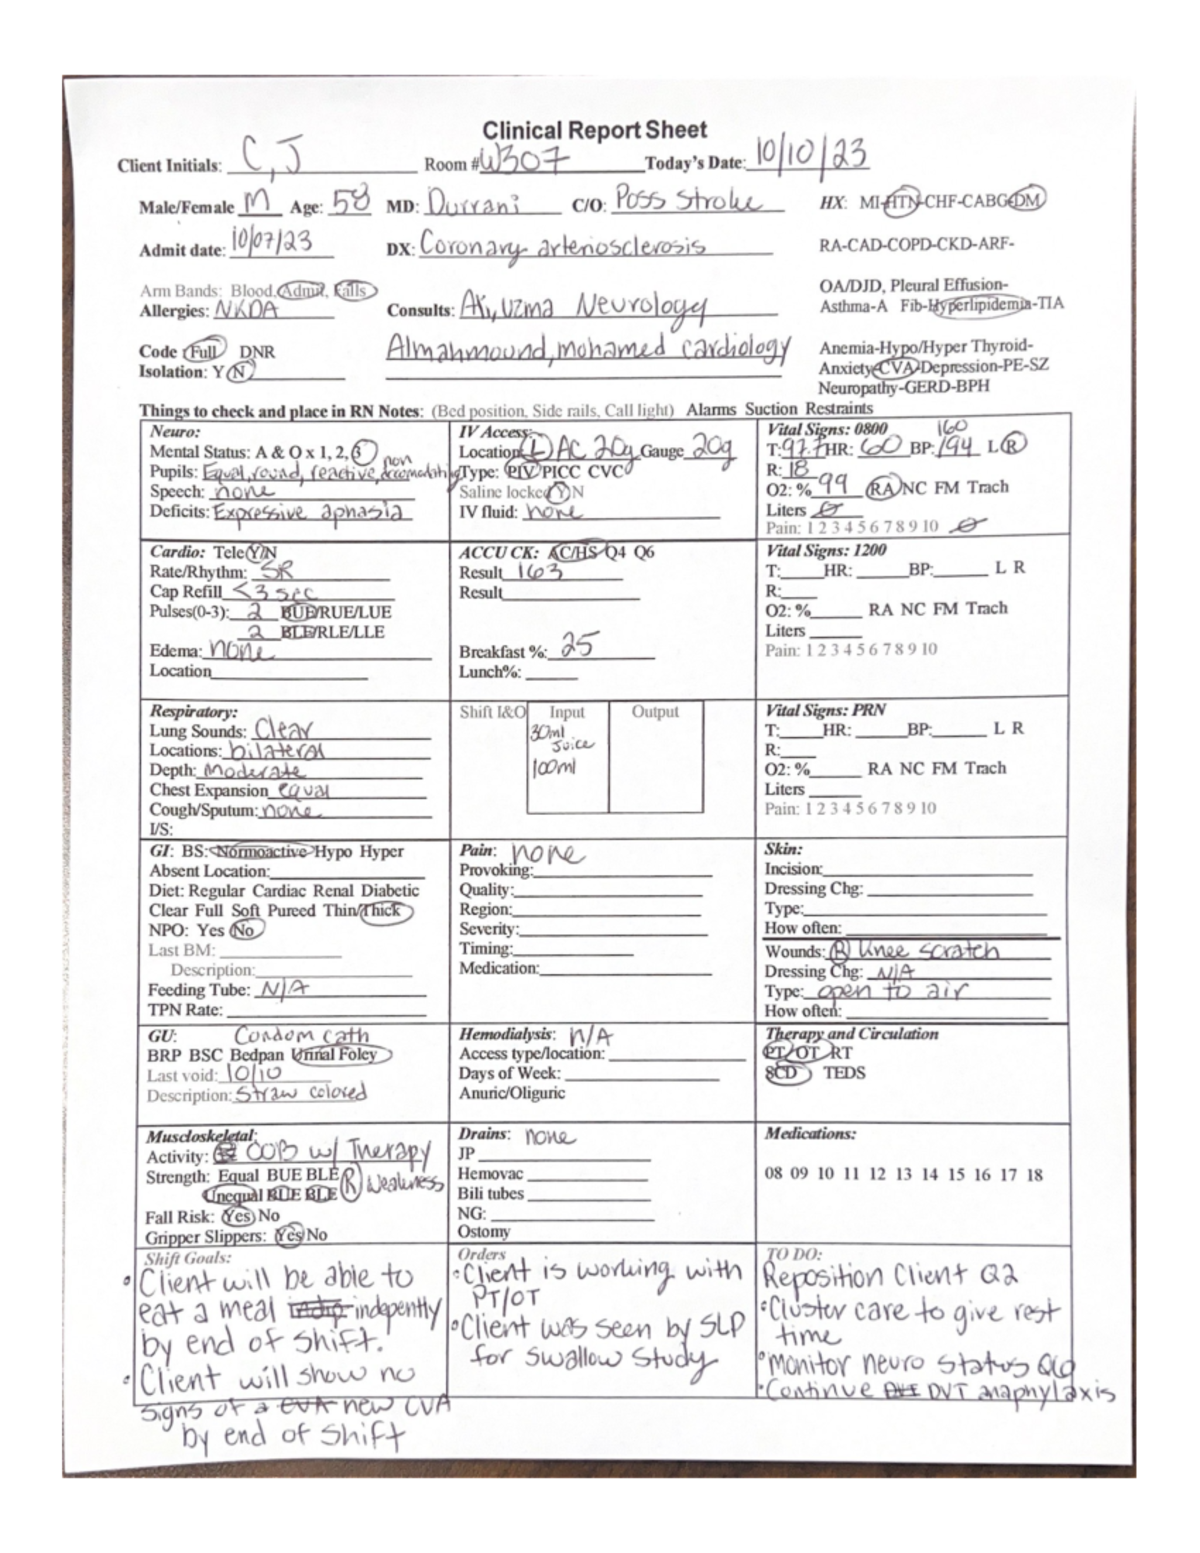 Clinical Report Sheet
Client Initials: C, J Room # W307 Today's Date: 10/10/23
Male/Female M Age: 58 MD: Durrani C/O: Poss stroke HX: MI-HTN-CHF-CABG-DM
Admit date: 10/07/23 DX: Coronary arteriosclerosis RA-CAD-COPD-CKD-ARF-
Arm Bands: Blood, Admit, Falls OA/DJD, Pleural Effusion-
Allergies: NKDA Consults: Ali, Uzma Neurology Asthma-A Fib-Hyperlipidemia-TIA
Code Full DNR Almahmound, mohamed cardiology Anemia-Hypo/Hyper Thyroid-
Isolation: Y N Anxiety-CVA-Depression-PE-SZ
Neuropathy-GERD-BPH
Things to check and place in RN Notes: (Bed position, Side rails, Call light) Alarms Suction Restraints
Neuro:
Mental Status: A & O x 1, 2, 3
Pupils: Equal, round, reactive, non accomodating
Speech: none
Deficits: Expressive aphasia
IV Access:
Location: L AC 20g Gauge 20g
Type: PIV PICC CVC
Saline locked Y N
IV fluid: none
Vital Signs: 0800
T: 97.7 HR: 60 BP: 160/94 L R
R: 18
O2: % 99 RA NC FM Trach
Liters ∅
Pain: 1 2 3 4 5 6 7 8 9 10 ∅
Cardio: Tele Y/N
Rate/Rhythm: SR
Cap Refill <3 sec
Pulses(0-3): 2 BUE/RUE/LUE
2 BLE/RLE/LLE
Edema: none
Location
ACCU CK: AC/HS Q4 Q6
Result 163
Result
Breakfast %: 25
Lunch%:
Vital Signs: 1200
T: HR: BP: L R
R:
O2: % RA NC FM Trach
Liters
Pain: 1 2 3 4 5 6 7 8 9 10
Respiratory:
Lung Sounds: Clear
Locations: bilateral
Depth: Moderate
Chest Expansion equal
Cough/Sputum: none
I/S:
Shift I&O Input Output
30ml
Juice
100ml
Vital Signs: PRN
T: HR: BP: L R
R:
O2: % RA NC FM Trach
Liters
Pain: 1 2 3 4 5 6 7 8 9 10
GI: BS: Normoactive Hypo Hyper
Absent Location:
Diet: Regular Cardiac Renal Diabetic
Clear Full Soft Pureed Thin/Thick
NPO: Yes No
Last BM:
Description:
Feeding Tube: N/A
TPN Rate:
Pain: none
Provoking:
Quality:
Region:
Severity:
Timing:
Medication:
Skin:
Incision:
Dressing Chg:
Type:
How often:
Wounds: R Knee scratch
Dressing Chg: N/A
Type: open to air
How often:
GU: Condom cath
BRP BSC Bedpan Urinal Foley
Last void: 10/10
Description: Straw colored
Hemodialysis: N/A
Access type/location:
Days of Week:
Anuric/Oliguric
Therapy and Circulation
PT/OT RT
SCD TEDS
Muscloskeletal:
Activity: OOB w/ Therapy
Strength: Equal BUE BLE R Weakness
Unequal BUE BLE
Fall Risk: Yes No
Gripper Slippers: Yes No
Drains: none
JP
Hemovac
Bili tubes
NG:
Ostomy
Medications:
08 09 10 11 12 13 14 15 16 17 18
Shift Goals:
• Client will be able to
eat a meal indepently
by end of shift.
• Client will show no
signs of a CVA new CVA
by end of shift
Orders
• Client is working with
PT/OT
• Client was seen by SLP
for swallow study
TO DO:
Reposition Client Q2
• Cluster care to give rest
time
• Monitor neuro status
• Continue DVT anaphylaxis